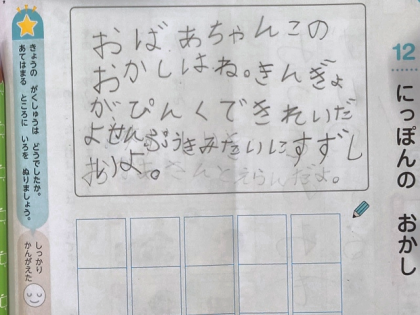 12 にっぽんの おかし
おばあちゃんこの
おかしはね。きんぎょ
がぴんくできれいだ
よせんぷうきみたいにすずし
いよ。
さんとえらんだよ。
きょうの がくしゅうは どうでしたか。
あてはまる ところに いろを ぬりましょう。
しっかり
かんがえた